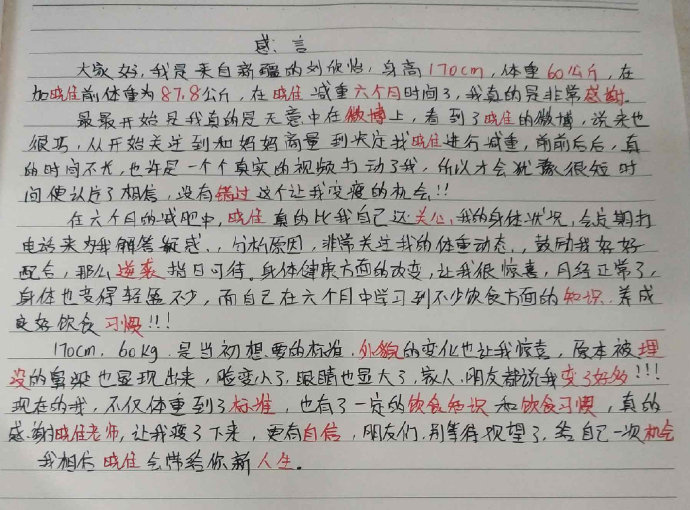 感言
大家好,我是来自新疆的刘欣怡,身高170cm,体重60公斤,在
加晓佳前体重为87.8公斤,在晓佳减重六个月时间了,我真的是非常感谢.
最最开始是我真的是无意中在微博上,看到了晓佳的微博,说来也
很巧,从开始关注到和妈妈商量到决定找晓佳进行减重,前前后后,真
的时间不长,也许是一个个真实的视频打动了我,所以才会犹豫很短时
间便认定了相信,没有错过这个让我变瘦的机会!!
在六个月的减肥中,晓佳真的比我自己还关心我的身体状况,会定期打
电话来为我解答疑惑.,分析原因,非常关注我的体重动态.,鼓励我好好
配合,那么逆袭指日可待.身体健康方面的改变,让我很惊喜,月经正常了,
身体也变得轻盈不少,而自己在六个月中学习到不少饮食方面的知识.养成
良好饮食习惯!!!
170cm,60kg,是当初想要的标准,外貌的变化也让我惊喜,原本被埋
没的鼻梁也显现出来,脸变小了,眼睛也显大了,家人.朋友都说我变了好多!!!
现在的我,不仅体重到了标准,也有了一定的饮食知识和饮食习惯,真的
感谢晓佳老师,让我瘦了下来,更有自信,朋友们,别等待观望了,给自己一次机会
我相信晓佳会带给你新人生.